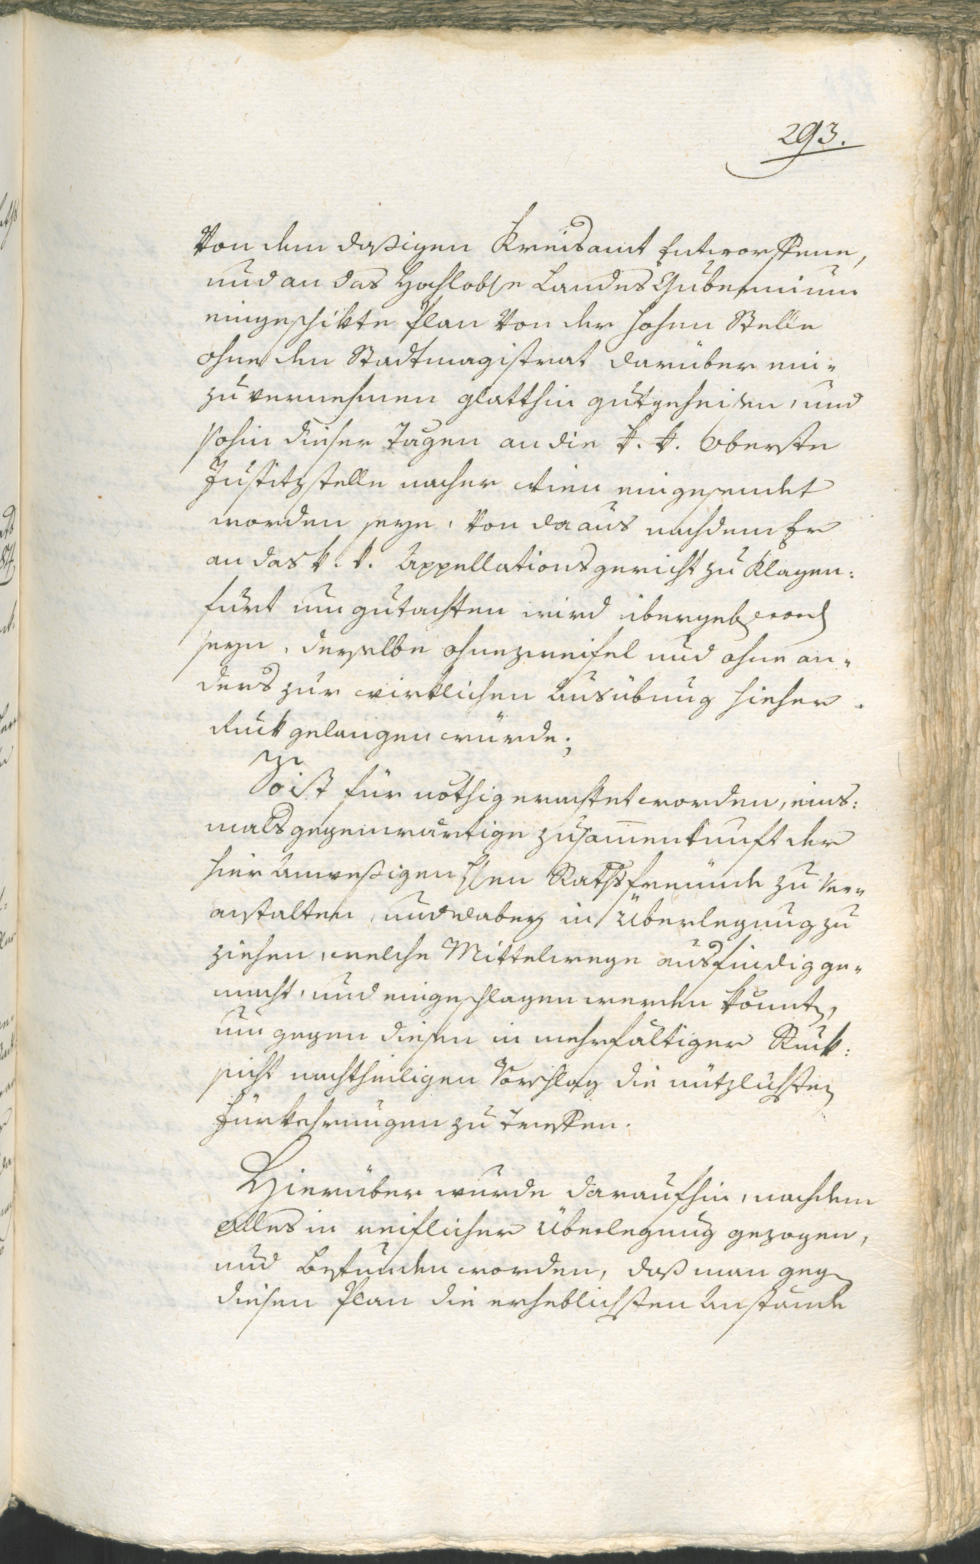 293.
Von dem dasigen Kreisamt Entworffene,
und an das Hochlobl<sup>e</sup> Landes Gubernium
eingeschikte Plan von der hohen Stelle
ohne den Stadtmagistrat darüber ein¬
zuvernehmen glatthin gutgeheissen, und
sohin dieser Tagen an die k. k. Oberste
Justitzstelle nacher Wien eingesendet
worden seye. Von da aus nachdem Er
an das k. k. Appellationsgericht zu Klagen:
furt um gutachten wird übergeben word
seyn, derselbe ohne zweifel und ohne an¬
ders zur wirklichen Ausübung hieher
Ruckgelangen würde;
So ist für nöthig erachtet worden, eins:
mals gegenwärtige Zusammenkunft der
hier Anwesigen H<sup>en</sup> Rathsfreünde zu ver¬
anstalten, und dabey in Überlegung zu
ziehen, welche Mittelwege ausfindig ge¬
macht, und eingeschlagen werden könnten,
um gegen diesen in mehrfältiger Ruck:
sicht nachtheiligen Vorschlag die nützlichsten
Fürkehrungen zu treffen.
Hierüber wurde daraufhin, nachdem
alles in reiflicher Überlegung gezogen,
und befunden worden, daß man gegen
diesen Plan die erheblichsten Anstände